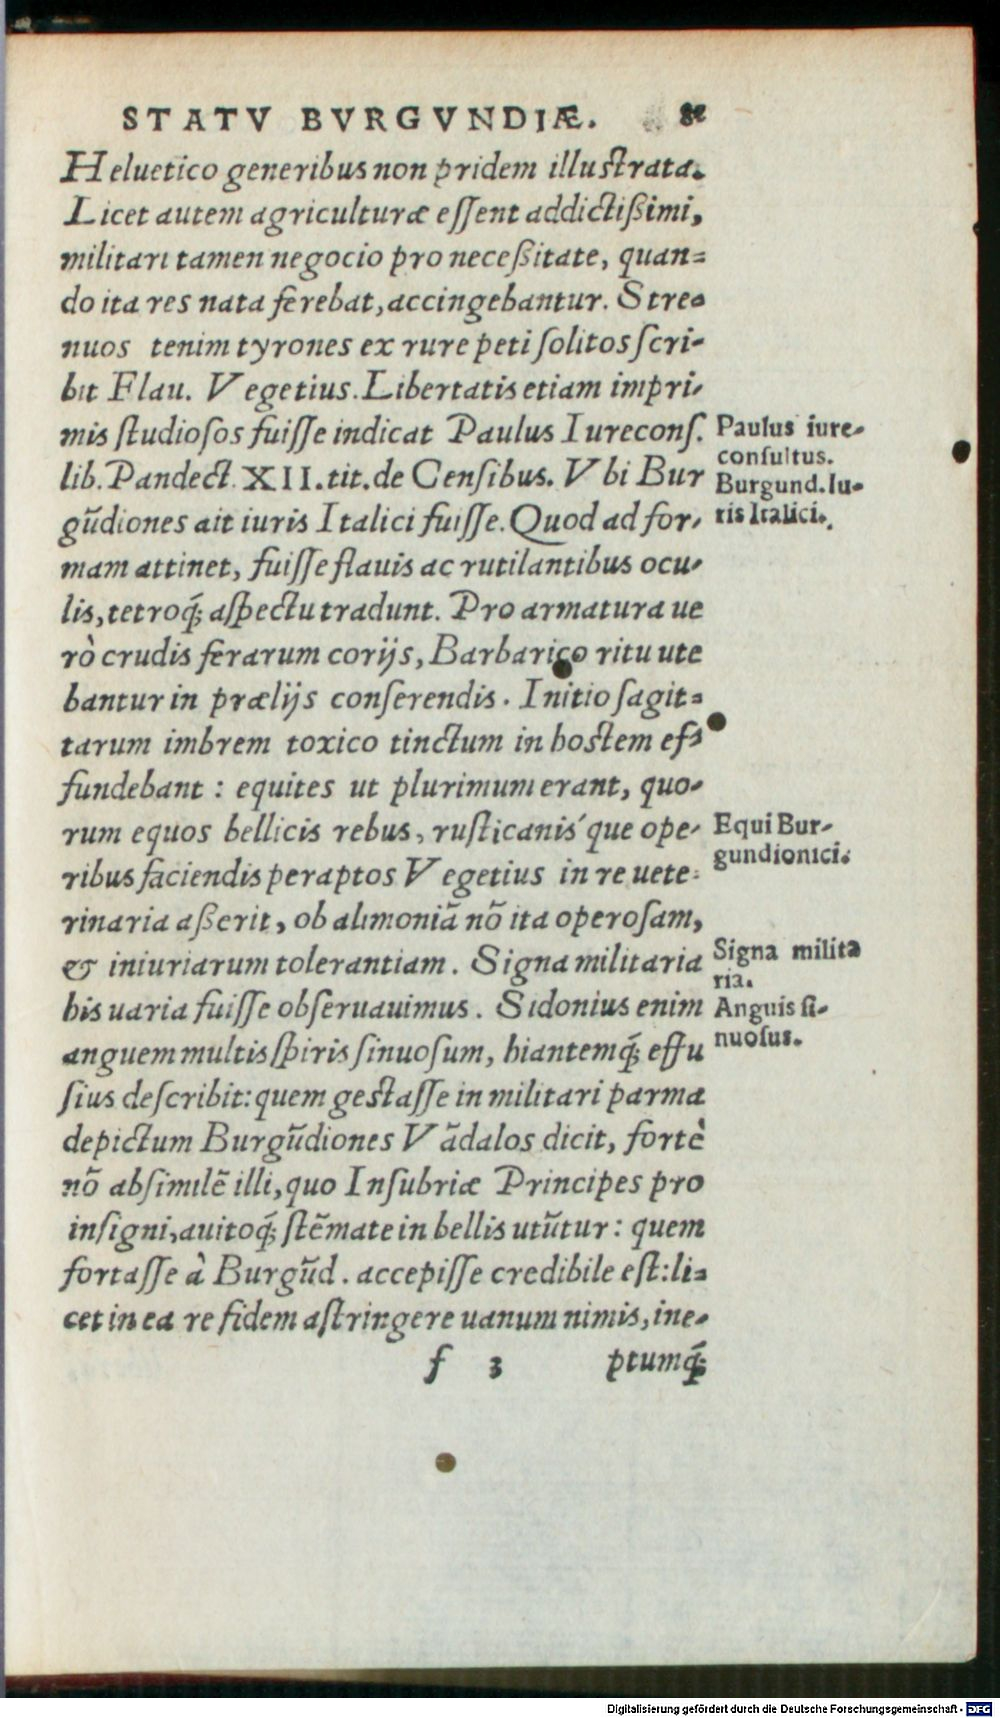 STATV BVRGVNDIÆ.
Heluetico generibus non pridem illuſtrata.
Licet autem agriculturæ eſſent addictißimi,
militari tamen negocio pro neceßitate, quan-
do ita res nata ferebat, accingebantur. Stre-
nuos tenim tyrones ex rure peti ſolitos ſcri-
bit Flau. Vegetius. Libertatis etiam impri-
mis ſtudioſos fuiſſe indicat Paulus Iureconſ.
lib. Pandect. XII. tit. de Cenſibus. Vbi Bur
gũdiones ait iuris Italici fuiſſe. Quod ad for-
mam attinet, fuiſſe flauis ac rutilantibus ocu-
lis, tetroq́; aſpectu tradunt. Pro armatura ue
rò crudis ferarum corijs, Barbarico ritu ute
bantur in prælijs conſerendis. Initio ſagit-
tarum imbrem toxico tinctum in hoſtem ef-
fundebant : equites ut plurimum erant, quo-
rum equos bellicis rebus, ruſticaniś que ope-
ribus faciendis peraptos Vegetius in re uete-
rinaria aßerit, ob alimoniã nõ ita operoſam,
& iniuriarum tolerantiam. Signa militaria
his uaria fuiſſe obſeruauimus. Sidonius enim
anguem multis ſpiris ſinuoſum, hiantemq́; effu
ſius deſcribit: quem geſtaſſe in militari parma
depictum Burgũdiones Vãdalos dicit, fortè
nõ abſimilẽ illi, quo Inſubriæ Principes pro
inſigni, auitoq́; ſtẽmate in bellis utũtur: quem
fortaſſe à Burgũd. accepiſſe credibile eſt: li-
cet in ea re fidem aſtringere uanum nimis, ine-
f 3 ptumq́;
Paulus iure-
conſultus.
Burgund. Iu-
ris Italici.
Equi Bur-
gundionici.
Signa milita
ria.
Anguis ſi-
nuoſus.
Digitalisierung gefördert durch die Deutsche Forschungsgemeinschaft - DFG